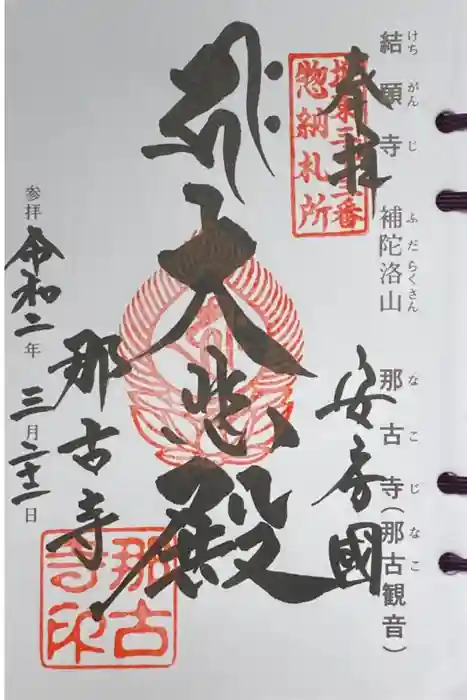 結願寺 補陀洛山 那古寺(那古観音)
けちがんじ ふだらくさん なこじなこ
奉拝
坂東三十三番
惣納札所
安房國
大悲殿
那古寺
那古寺印
参拝 令和二年三月二十二日